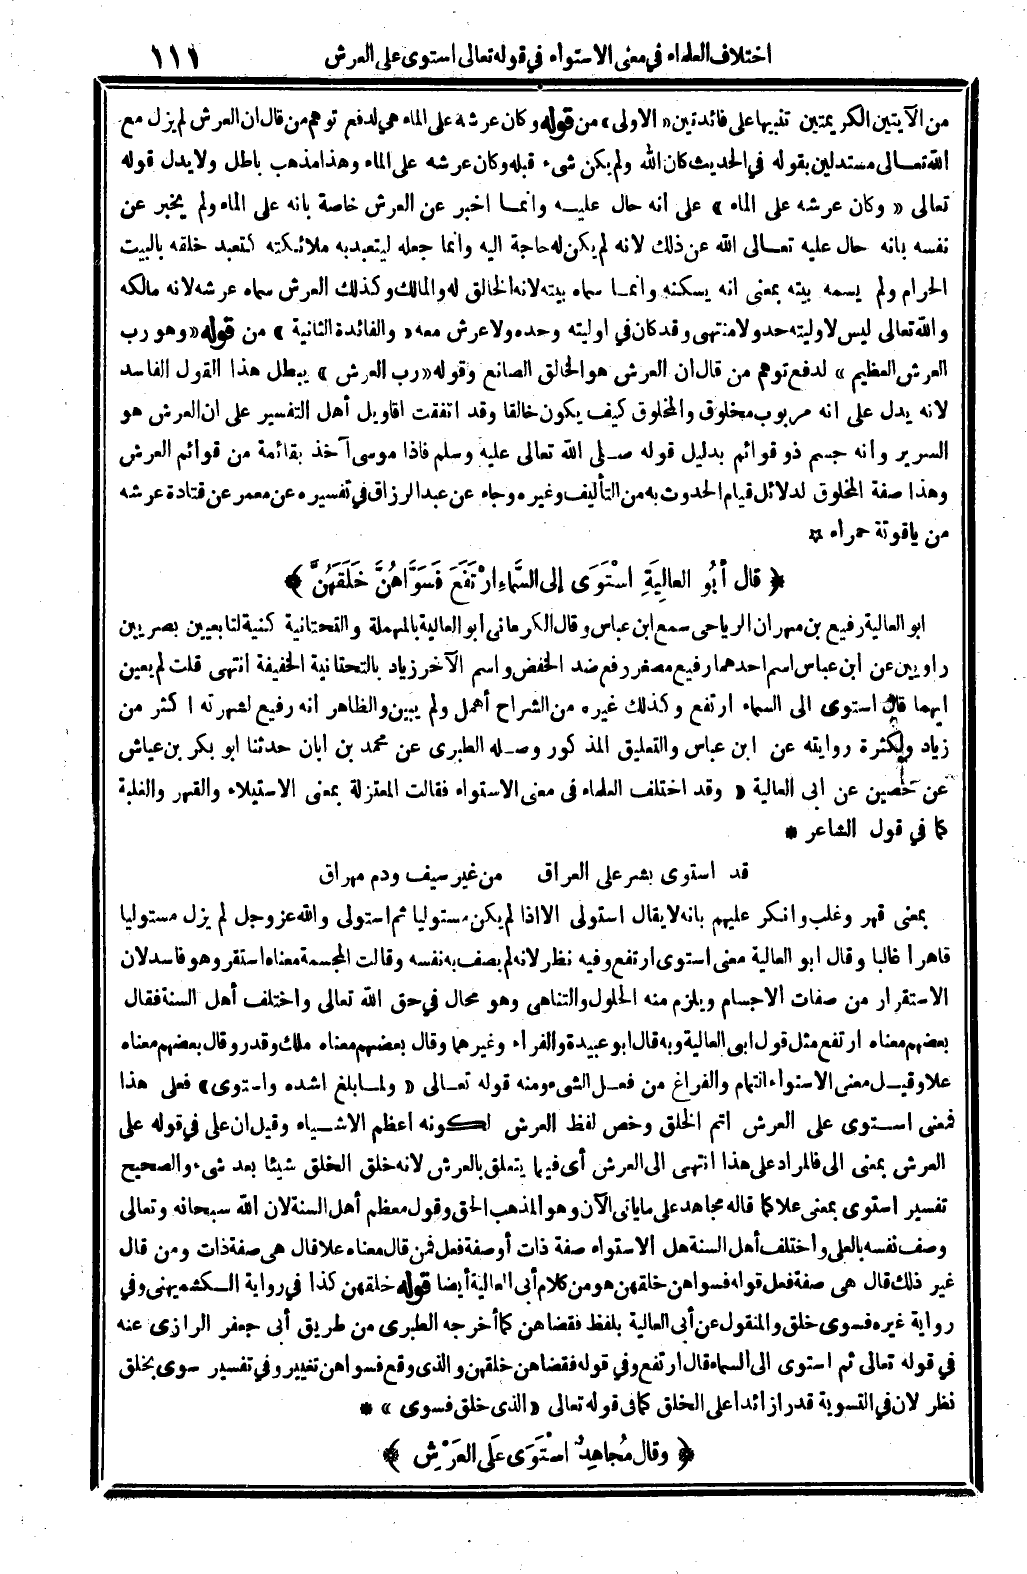 اختلاف العلماء في معنى الاستواء في قوله تعالى استوى على العرش ١١١
من الآيتين الكريمتين تنبيها على فائدتين « الاولى » من قوله وكان عرشه على الماء هي لدفع توهم من قال ان العرش لم يزل مع
الله تعالى مستدلين بقوله في الحديث كان الله ولم يكن شىء قبله وكان عرشه على الماء وهذا مذهب باطل ولا يدل قوله
تعالى « وكان عرشه على الماء » على أنه حال عليه وانما اخبر عن العرش خاصة بانه على الماء ولم يخبر عن
نفسه بانه حال عليه تعالى الله عن ذلك لانه لم يكن له حاجة اليه وانما جعله ليتعبد به ملائكته كتعبد خلقه بالبيت
الحرام ولم يسمه بيته بمعنى انه يسكنه وانما سماه بيته لانه الخالق له والمالك وكذلك العرش سماه عرشه لانه مالكه
والله تعالى ليس لاوليته حد ولا منتهى وقد كان في اوليته وحده ولا عرش معه « والفائدة الثانية » من قوله « وهو رب
العرش العظيم » لدفع توهم من قال ان العرش هو الخالق الصانع وقوله « رب العرش » يبطل هذا القول الفاسد
لانه يدل على انه مربوب مخلوق والمخلوق كيف يكون خالقا وقد اتفقت اقاويل أهل التفسير على ان العرش هو
السرير وانه جسم ذو قوائم بدليل قوله صلى الله تعالى عليه وسلم فاذا موسى آخذ بقائمة من قوائم العرش
وهذا صفة المخلوق لدلائل قيام الحدوث به من التأليف وغيره وجاء عن عبد الرزاق في تفسيره عن معمر عن قتادة عرشه
من ياقوتة حمراء ✡
﴿ قال أبُو العالِيَةِ اسْتَوَى إلى السَّماءِ ارْتَفَعَ فَسَوَّاهُنَّ خَلَقَهُنَّ ﴾
ابو العالية رفيع بن مهران الرياحى سمع ابن عباس وقال الكرمانى أبو العالية بالمهملة والتحتانية كنية لتابعيين بصريين
راويين عن ابن عباس اسم احدهما رفيع مصغر رفع ضد الخفض واسم الآخر زياد بالتحتانية الخفيفة انتهى قلت لم يعين
ايهما قال استوى الى السماء ارتفع وكذلك غيره من الشراح أهمل ولم يبين والظاهر انه رفيع لشهرته اكثر من
زياد ولكثرة روايته عن ابن عباس والتعليق المذكور وصله الطبرى عن محمد بن ابان حدثنا ابو بكر بن عياش
عن حصين عن ابى العالية « وقد اختلف العلماء فى معنى الاستواء فقالت المعتزلة بمعنى الاستيلاء والقهر والغلبة
كما في قول الشاعر *
قد استوى بشر على العراق من غير سيف ودم مهراق
بمعنى قهر وغلب وانكر عليهم بانه لا يقال استولى الا اذا لم يكن مستوليا ثم استولى والله عز وجل لم يزل مستوليا
قاهرا غالبا وقال ابو العالية معنى استوى ارتفع وفيه نظر لانه لم يصف به نفسه وقالت المجسمة معناه استقر وهو فاسد لان
الاستقرار من صفات الاجسام ويلزم منه الحلول والتناهى وهو محال في حق الله تعالى واختلف أهل السنة فقال
بعضهم معناه ارتفع مثل قول ابى العالية وبه قال ابو عبيدة والفراء وغيرهما وقال بعضهم معناه ملك وقدر وقال بعضهم معناه
علا وقيل معنى الاستواء التمام والفراغ من فعل الشىء ومنه قوله تعالى « ولما بلغ اشده واستوى » فعلى هذا
فمعنى استوى على العرش اتم الخلق وخص لفظ العرش لكونه اعظم الاشياء وقيل ان على في قوله على
العرش بمعنى الى فالمراد على هذا انتهى الى العرش أى فيما يتعلق بالعرش لانه خلق الخلق شيئا بعد شىء والصحيح
تفسير استوى بمعنى علا كما قاله مجاهد على ما ياتى الآن وهو المذهب الحق وقول معظم أهل السنة لان الله سبحانه وتعالى
وصف نفسه بالعلى واختلف أهل السنة هل الاستواء صفة ذات أو صفة فعل فمن قال معناه علا قال هى صفة ذات ومن قال
غير ذلك قال هى صفة فعل قوله فسواهن خلقهن هو من كلام أبى العالية أيضا قوله خلقهن كذا في رواية الكشميهنى وفي
رواية غيره فسوى خلق والمنقول عن أبى العالية بلفظ فقضاهن كما أخرجه الطبرى من طريق أبى جعفر الرازى عنه
في قوله تعالى ثم استوى الى السماء قال ارتفع وفي قوله فقضاهن خلقهن والذى وقع فسواهن تغيير وفي تفسير سوى بخلق
نظر لان في التسوية قدرا زائدا على الخلق كما فى قوله تعالى « الذى خلق فسوى » *
﴿ وقال مُجاهِدٌ اسْتَوَى عَلَى العَرْشِ ﴾